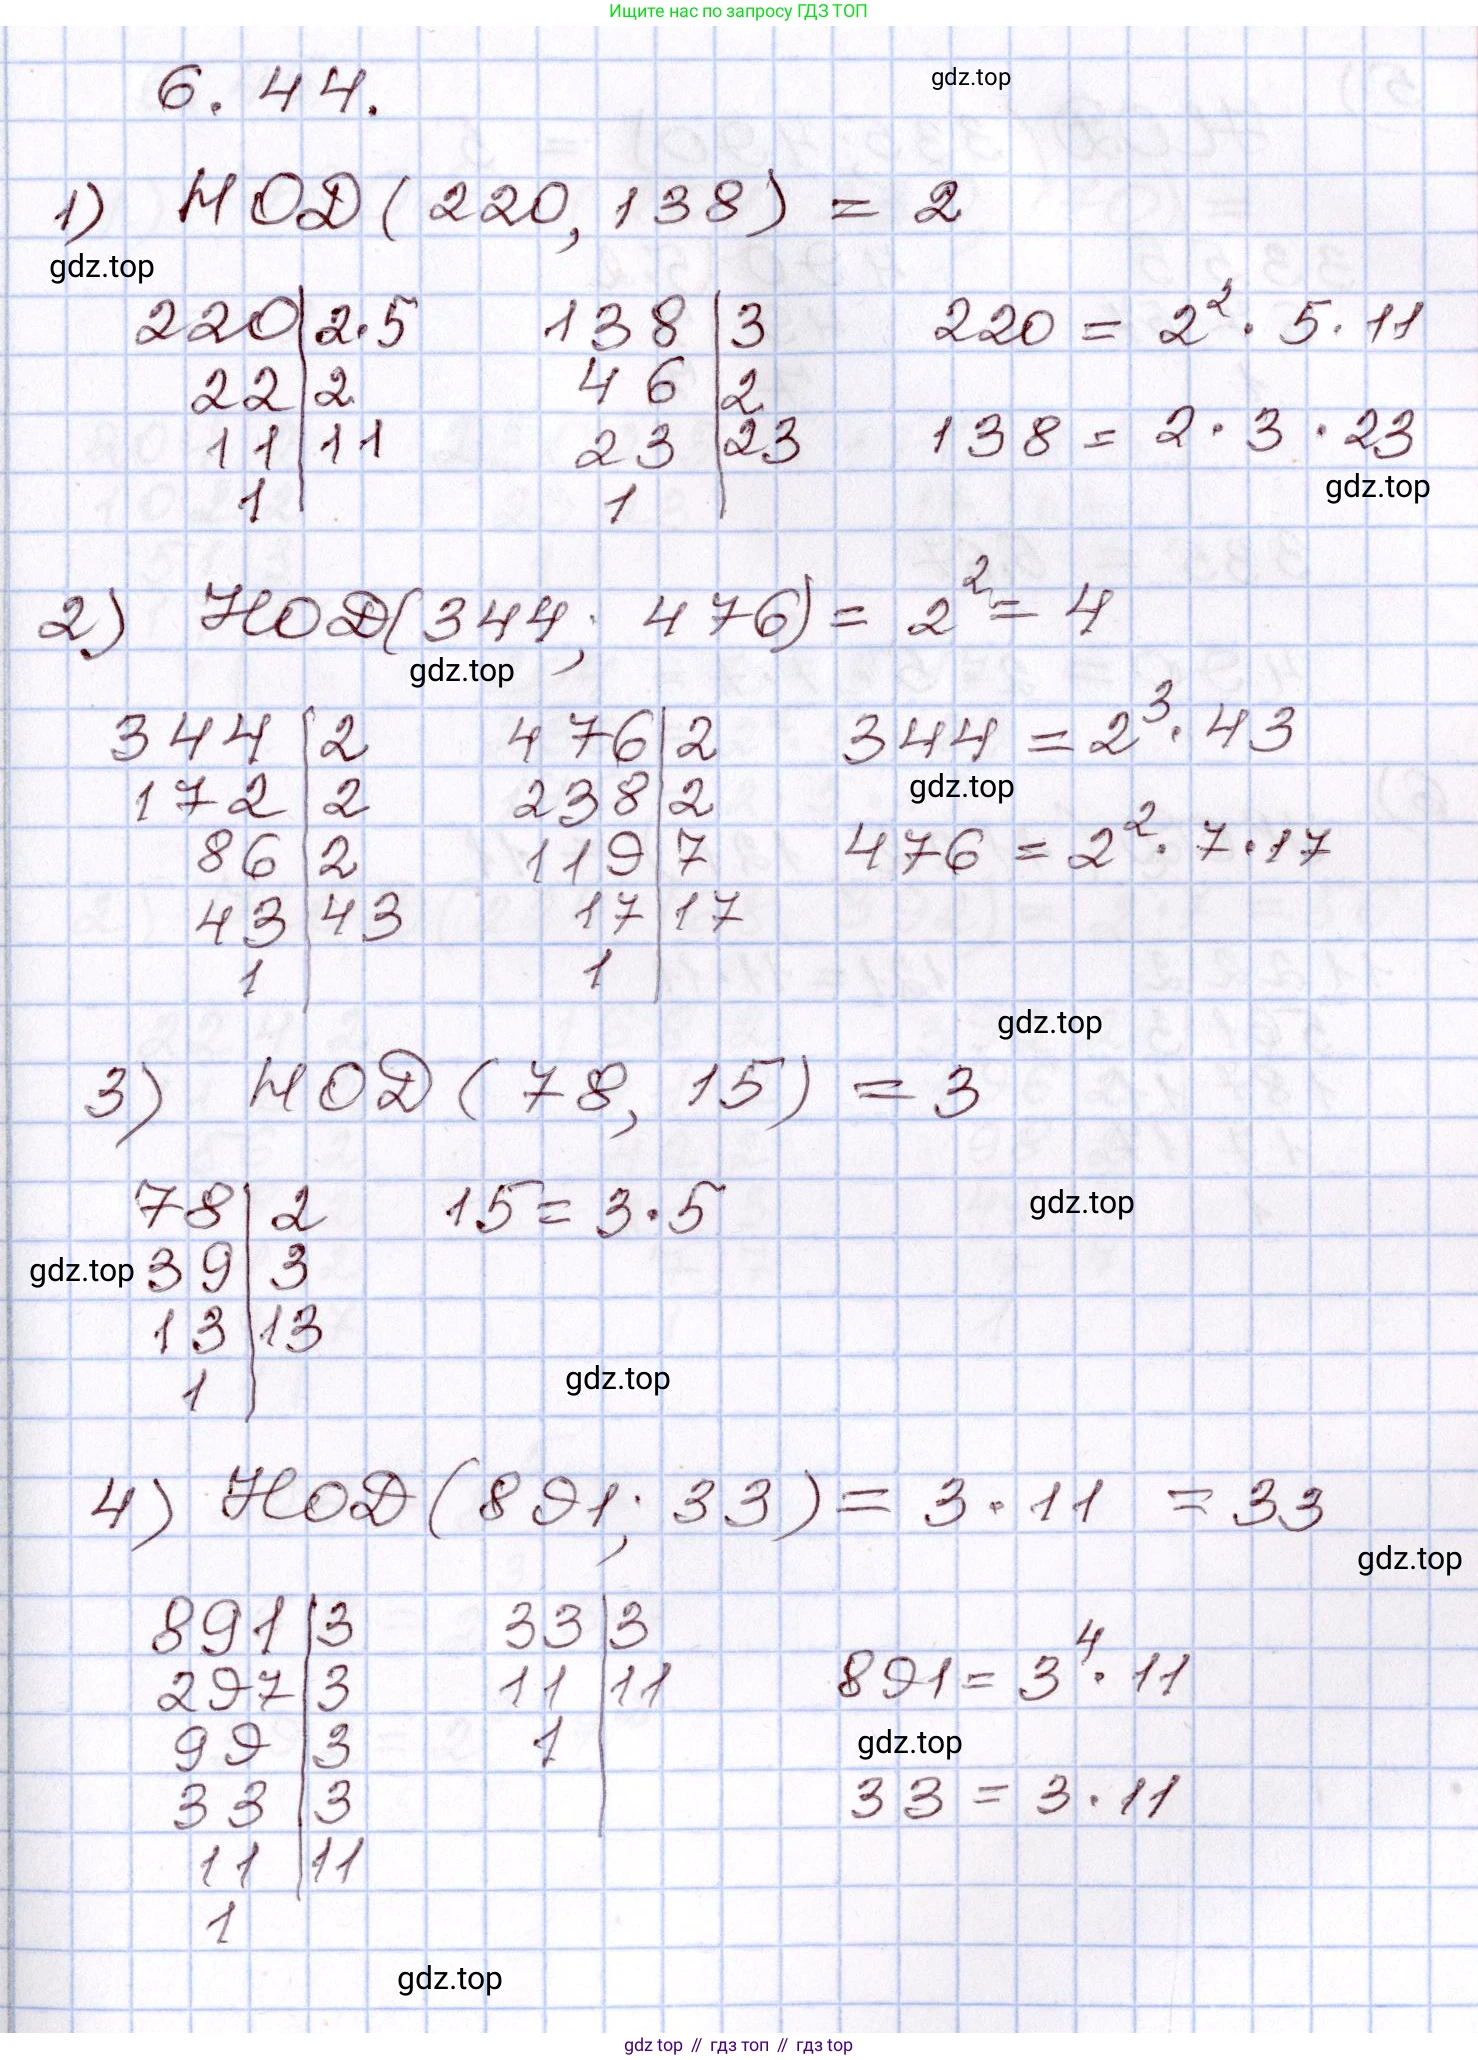 Ищите нас по запросу ГДЗ ТОП
6.44.
gdz.top
1) НОД(220, 138) = 2
gdz.top
220 | 2·5   138 | 3   220 = 2²·5·11
22 | 2   46 | 2
11 | 11   23 | 23   138 = 2·3·23
1   1
gdz.top
2) НОД(344; 476) = 2² = 4
gdz.top
344 | 2   476 | 2   344 = 2³·43
172 | 2   238 | 2
gdz.top
86 | 2   119 | 7   476 = 2²·7·17
43 | 43   17 | 17
1   1
gdz.top
3) НОД(78, 15) = 3
78 | 2   15 = 3·5
gdz.top
gdz.top
39 | 3
13 | 13
1
gdz.top
4) НОД(891; 33) = 3·11 = 33
gdz.top
891 | 3   33 | 3
297 | 3   11 | 11   891 = 3⁴·11
99 | 3   1
gdz.top
33 | 3   33 = 3·11
11 | 11
1
gdz.top
gdz top // гдз топ // gdz top